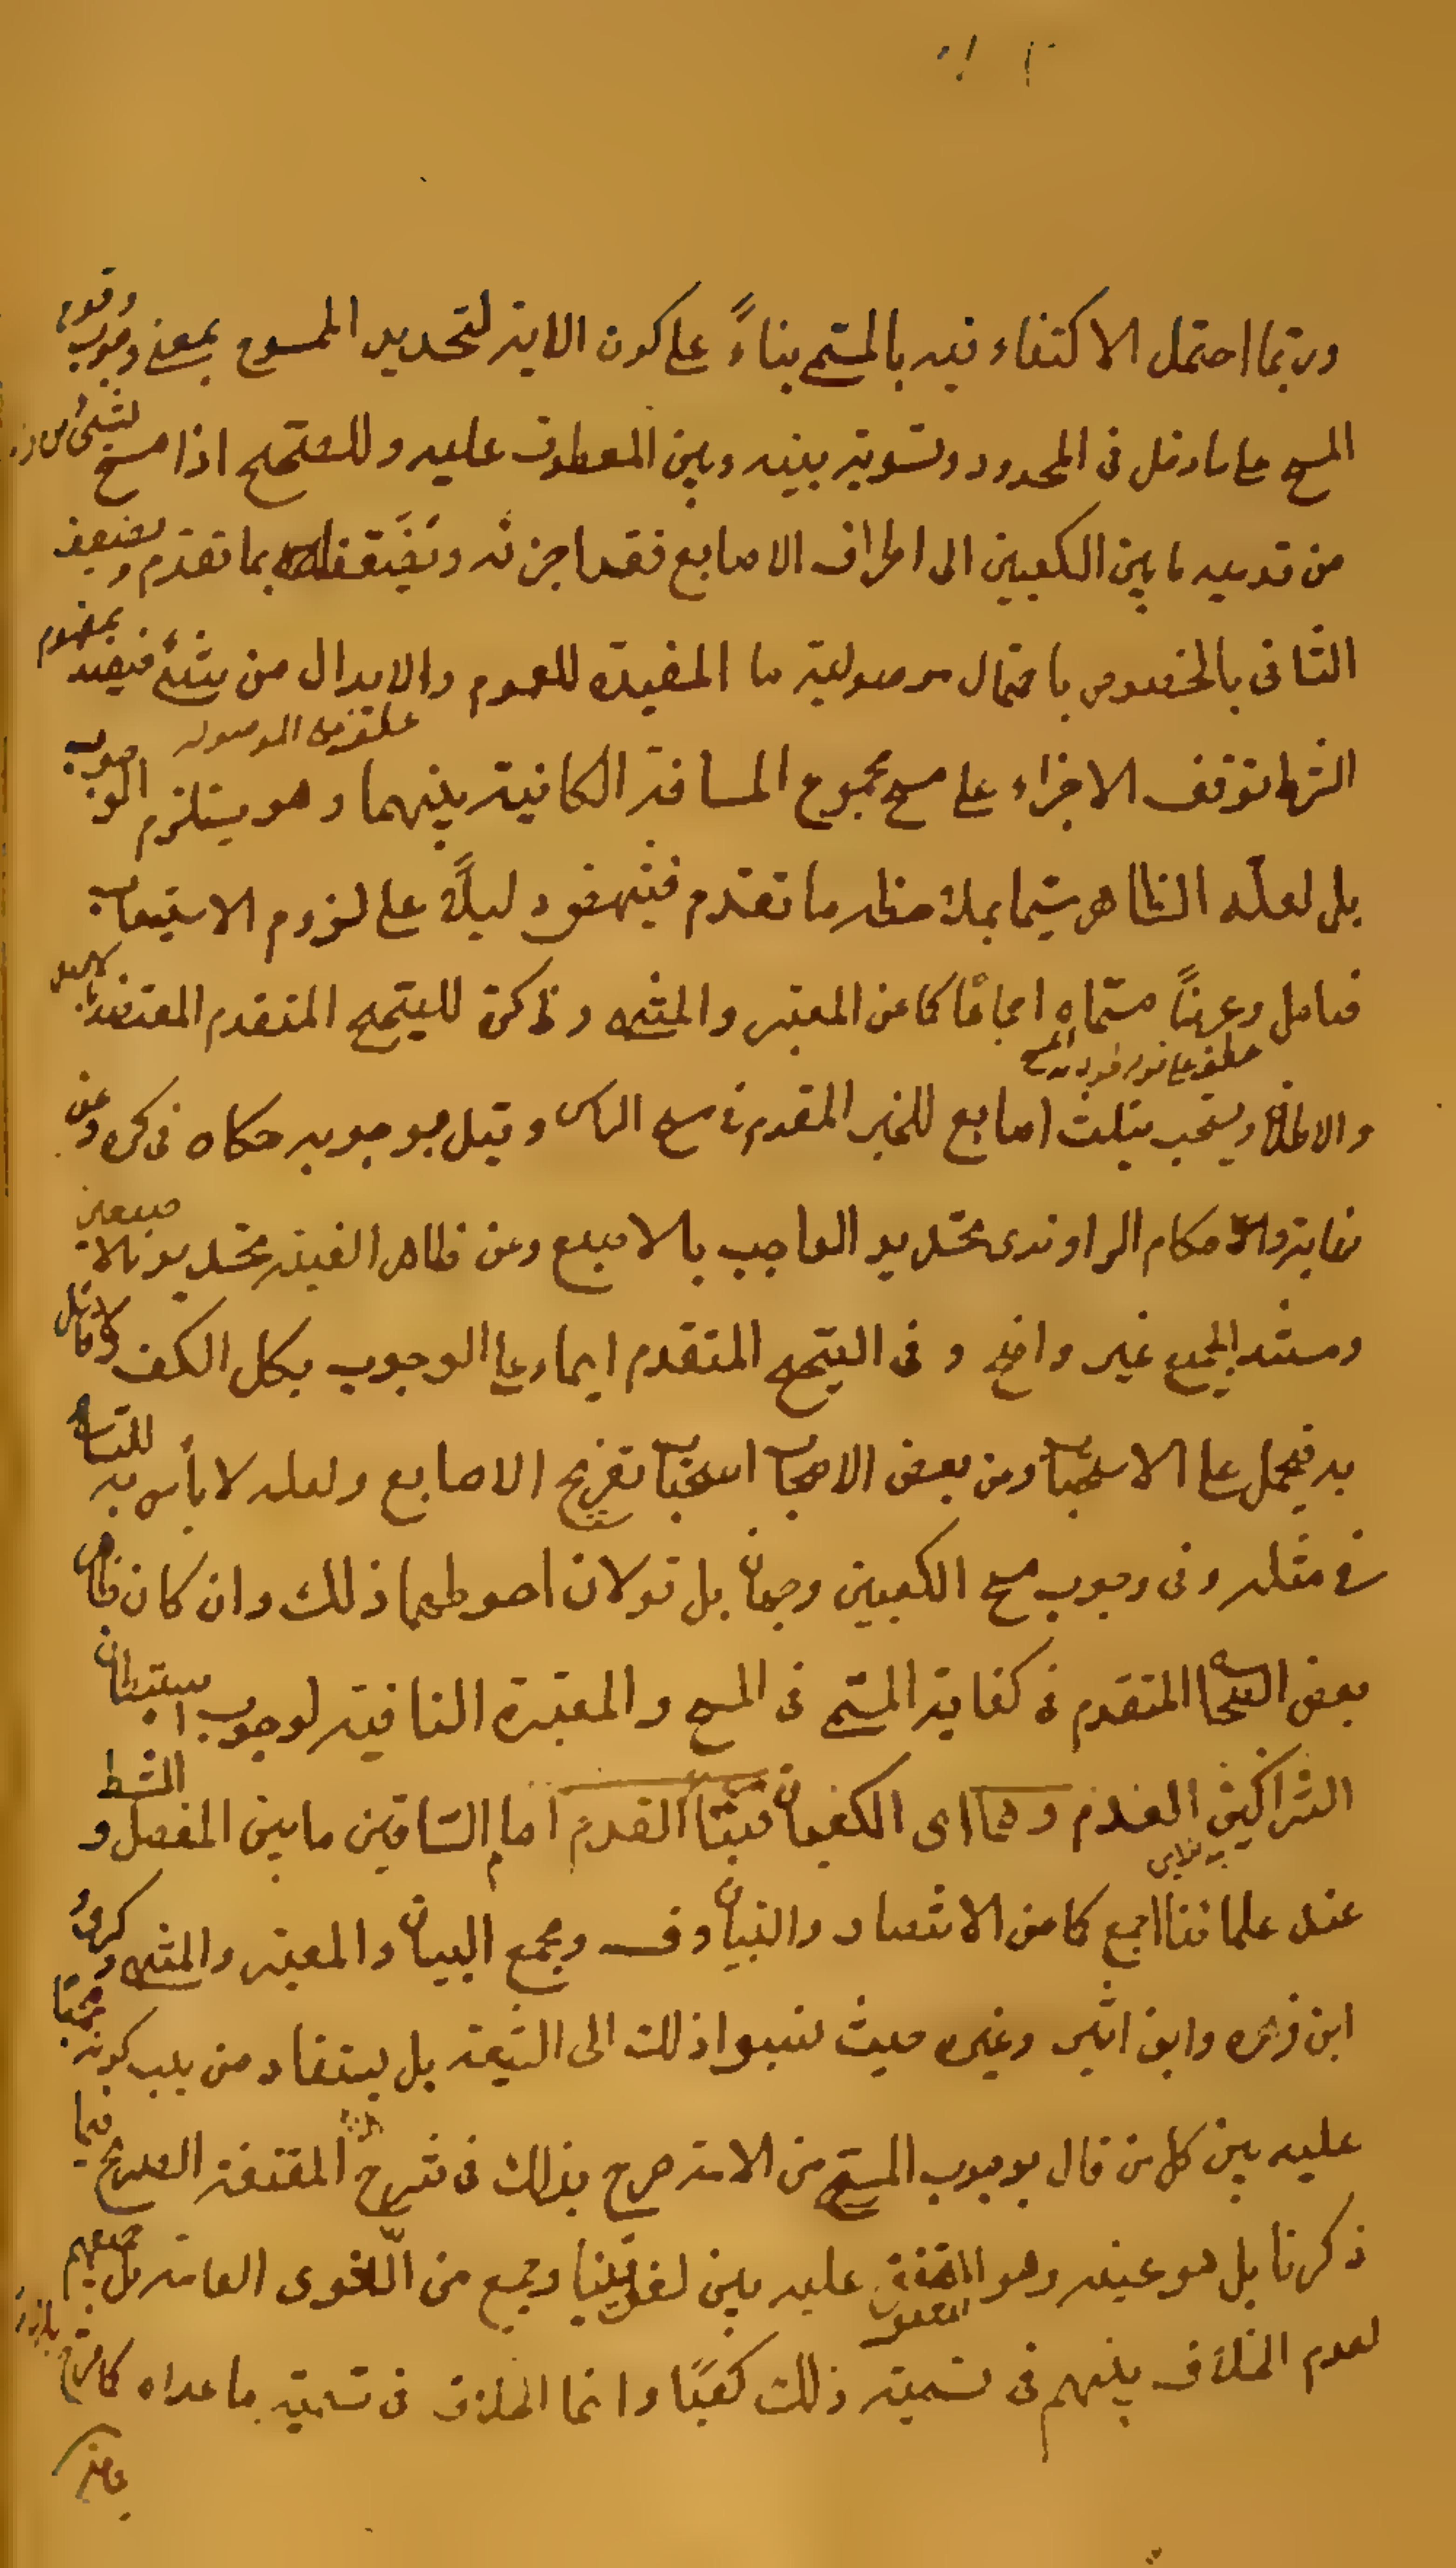 وربّما احتمل الاكتفاء فيه بالمسمّى بناءً على كون الاية لتحديد الممسوح بمعنى وجوب وقوع
المسح على ما دخل فى المحدود وتسوية بينه وبين المعطوف عليه وللصّحيح اذا مسح بشىء من
من قدميه ما بين الكعبين الى اطراف الاصابع فقد اجزئه ويضعّف بما تقدم ويضعف
الثانى بالخصوص باحتمال موصولية ما المفيدة للعموم والابدال من شىء فيفيد بمفهوم
الشرط توقف الاجزاء على مسح مجموع المسافة الكائنة بينهما وهو يستلزم الوجوب
بل لعلّه الظاهر سيّما بملاحظة ما تقدم فينهض دليلاً على لزوم الاستيعاب
فتامل وعرضاً مسمّاه اجماعًا كما عن المعتبر والمنتهى وظ كرة للصّحيح المتقدم المعتضد بالاصل
عطف على قوله طولا المسح
والاطلاق ويستحب بثلث اصابع للخبر المقدم فى مسح الراس وقيل بوجوبه حكاه فى كره وعن
نهاية والاحكام الراوندى تحديد الواجب بالاصبع وعن ظاهر الغنية تحديده بالاصبعين
ومستند الجميع غير واضح وفى الصّحيح المتقدم ايماء على الوجوب بكل الكف ولا قائل
به فيحمل على الاستحباب وعن بعض الاصحاب استحباب تفريج الاصابع ولعله لا بأس به للتسامح
فى مثله وفى وجوب مسح الكعبين وجهان بل قولان احوطهما ذلك وان كان ظاهر
بعض الصحاح المتقدم فى كفاية المسمى فى المسح والمعتبرة النافية لوجوب استبطان
الشراكين العدم وهما اى الكعبان قبّتا القدم امام السّاقين ما بين المفصل والمشط
عند علمائنا اجمع كما من الانتصار والتبيان وف ومجمع البيان والمعتبر والمنتهى وكرى و
ابن زهره وابن اثير وغيره حيث نسبوا ذلك الى الشيعة بل يستفاد من يب كونه مجمعا
عليه بين كل من قال بوجوب المسح من الامة صرح بذلك فى شرح المقنعة الصريح فيما
ذكرنا بل هو عينه وهو المتفق عليه بين لغويّينا وجمع من اللّغوى العامة بل جميعهم
لعدم الخلاف بينهم فى تسمية ذلك كعبًا وانما الخلاف فى تسمية ما عداه كما صرح